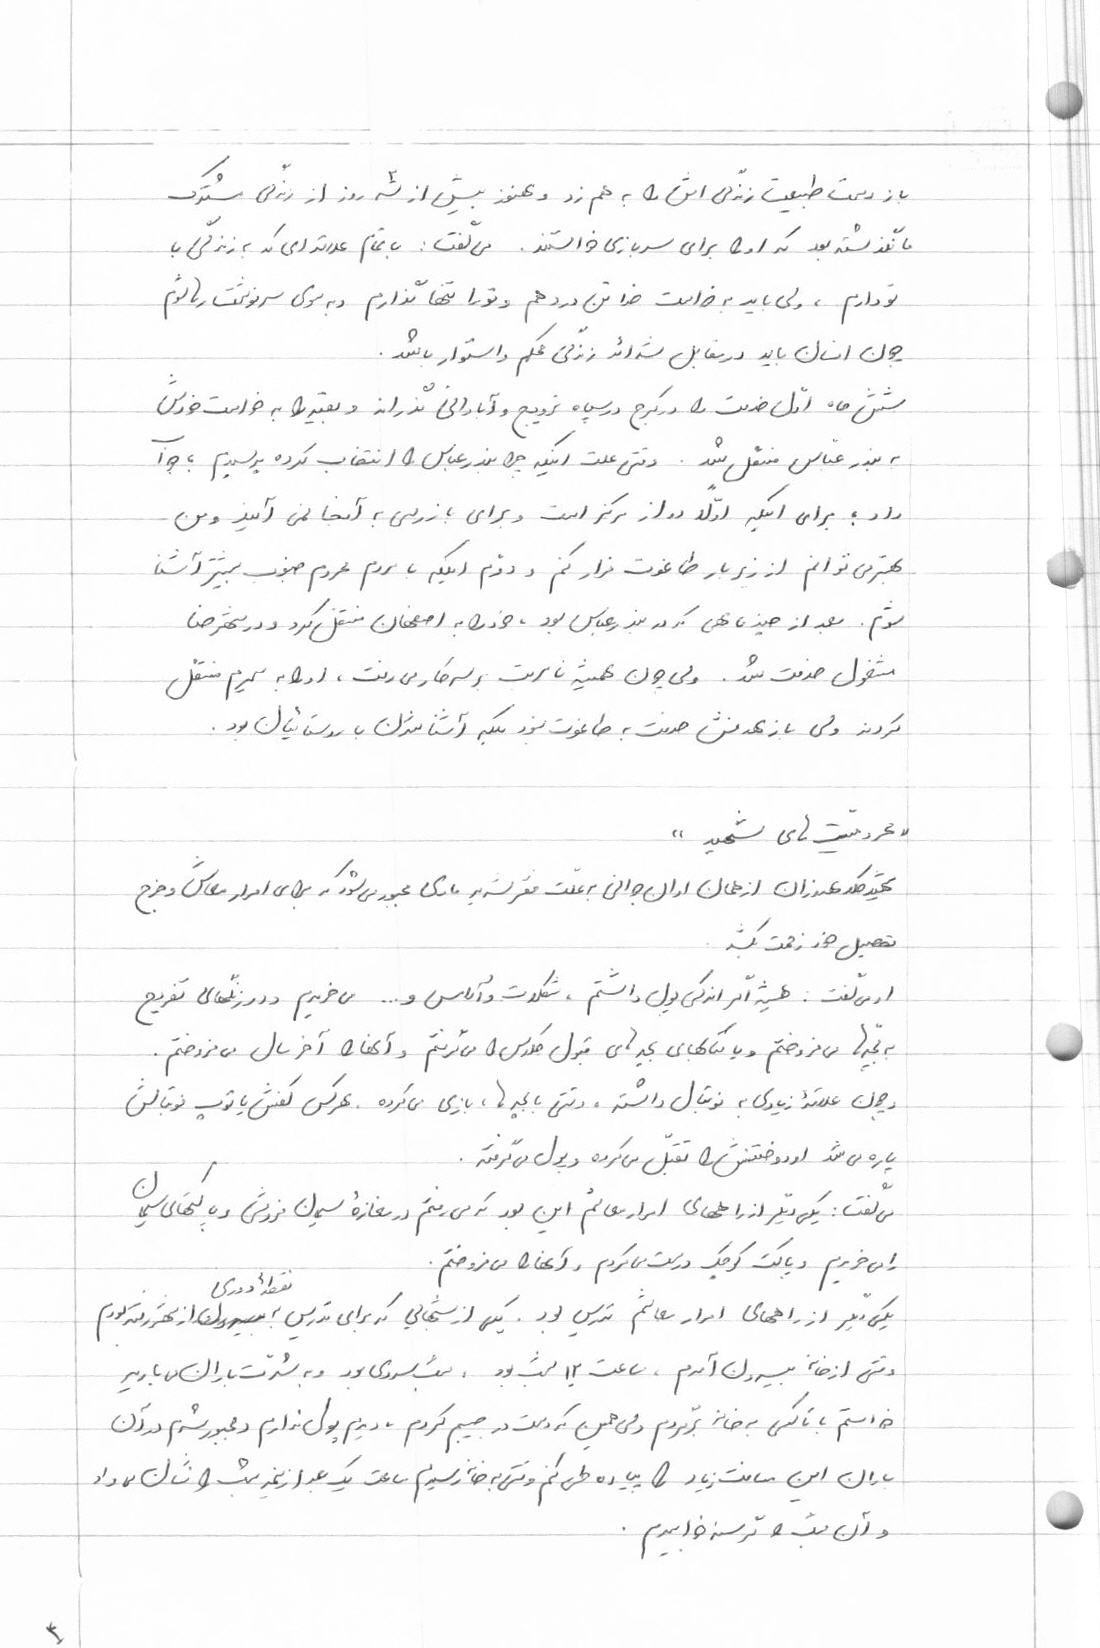 باز دست طبیعت زندگی اش را به هم زد و هنوز بیش از سه روز از زندگی مشترک
ما نگذشته بود که او را برای سربازی خواستند. می گفت: با تمام علاقه ای که به زندگی با
تو دارم، ولی باید به خواست خدا تن در دهم و تو را تنها گذارم و به سوی سرنوشت رها شوم
چون انسان باید در مقابل شدائد زندگی محکم و استوار باشد.
شش ماه اول خدمت را در کرج در سپاه ترویج و آبادانی گذراند و بقیه را به خواست خودش
به بندر عباس منتقل شد. وقتی علت اینکه چرا بندرعباس را انتخاب کرده پرسیدم جواب
داد؛ برای اینکه اولاً دور از مرکز است و برای بازرسی به آنجا نمی آیند و من
بهتر می توانم از زیر بار طاغوت فرار کنم و دوم اینکه با مردم محروم جنوب بیشتر آشنا
شوم. بعد از چند ماهی که در بندرعباس بود، خود را به اصفهان منتقل کرد و در شهرضا
مشغول خدمت شد. ولی چون همیشه نامرتب به سر کار می رفت، او را به سمیرم منتقل
کردند ولی باز هدفش خدمت به طاغوت نبود بلکه آشنا شدن با روستائیان بود.
«محرومیت های شهید»
از همان اوان جوانی به علت فقر شدید مادی مجبور می شود که برای امرار معاش و خرج
تحصیل خود زحمت بکشد.
او می گفت: همیشه اگر اندکی پول داشتم، شکلات و آدامس و... می خریدم و در زنگهای تفریح
به بچه ها می فروختم و یا کتابهای بچه های قبول کلاس را می گرفتم و آنها را آخر سال می فروختم.
و چون علاقۀ زیادی به فوتبال داشته، وقتی با بچه ها، بازی می کرده. هر کس کفش یا توپ فوتبالش
پاره می شد او دوختنش را تقبل می کرده و پول می گرفته.
می گفت: یکی دیگر از راههای امرار معاشم این بود که می رفتم در مغازۀ سیمان فروشی و پاکتهای سیمان
را می خریدم و پاکت کوچک درست می کردم و آنها را می فروختم.
یکی دیگر از راههای امرار معاشم تدریس بود. یکی از شبهایی که برای تدریس به نقطۀ دوری از شهر رفته بودم
وقتی از خانه بیرون آمدم، ساعت ۱۲ شب بود، شب سردی بود و به شدت باران می بارید
خواستم با تاکسی به خانه برگردم ولی همین که دست در جیبم کردم، دیدم پول ندارم و مجبور شدم در آن
باران این مسافت زیاد را پیاده طی کنم وقتی به خانه رسیدم ساعت یک بعد از نیمه شب را نشان می داد
و آن شب را گرسنه خوابیدم.
۴